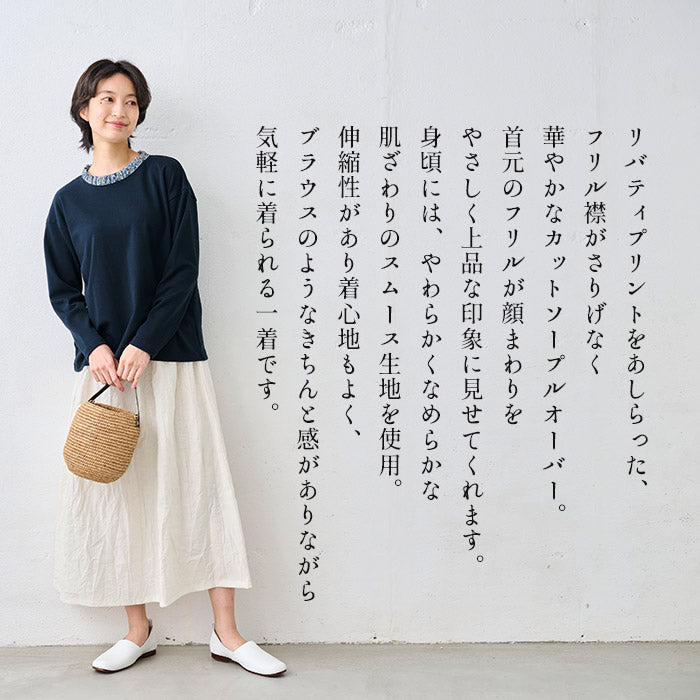 リバティプリントをあしらった、
フリル襟がさりげなく
華やかなカットソープルオーバー。
首元のフリルが顔まわりを
やさしく上品な印象に見せてくれます。
身頃には、やわらかくなめらかな
肌ざわりのスムース生地を使用。
伸縮性があり着心地もよく、
ブラウスのようなきちんと感がありながら
気軽に着られる一着です。